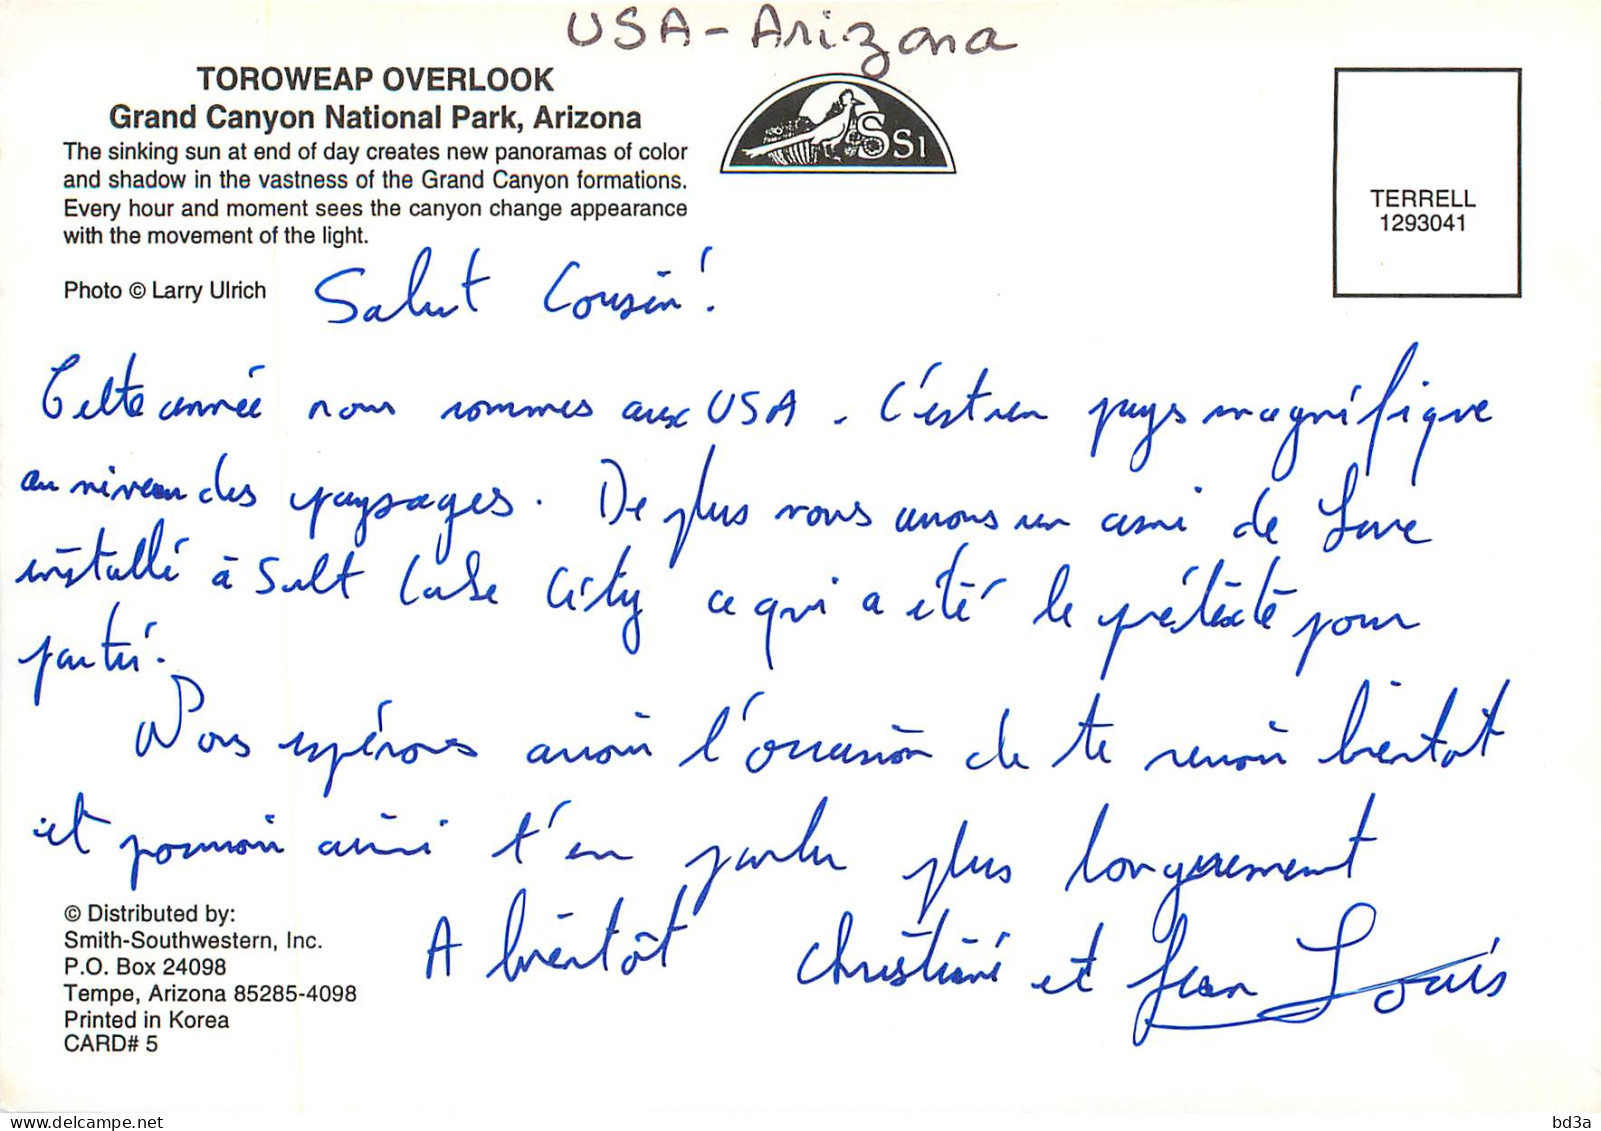 USA - Arizona
TOROWEAP OVERLOOK
Grand Canyon National Park, Arizona
The sinking sun at end of day creates new panoramas of color
and shadow in the vastness of the Grand Canyon formations.
Every hour and moment sees the canyon change appearance
with the movement of the light.
Photo © Larry Ulrich
SSI
TERRELL
1293041
Salut Cousin!
Cette année nous sommes aux USA. C'est un pays magnifique
au niveau des paysages. De plus nous avons un ami de
installé à Salt Lake City ce qui a été le prétexte pour
partir.
Nous espérons avoir l'occasion de te revoir bientot
et pouvoir ainsi t'en parler plus longuement
A bientôt Christiane et Jean Louis
© Distributed by:
Smith-Southwestern, Inc.
P.O. Box 24098
Tempe, Arizona 85285-4098
Printed in Korea
CARD# 5
delcampe.net
bd3a